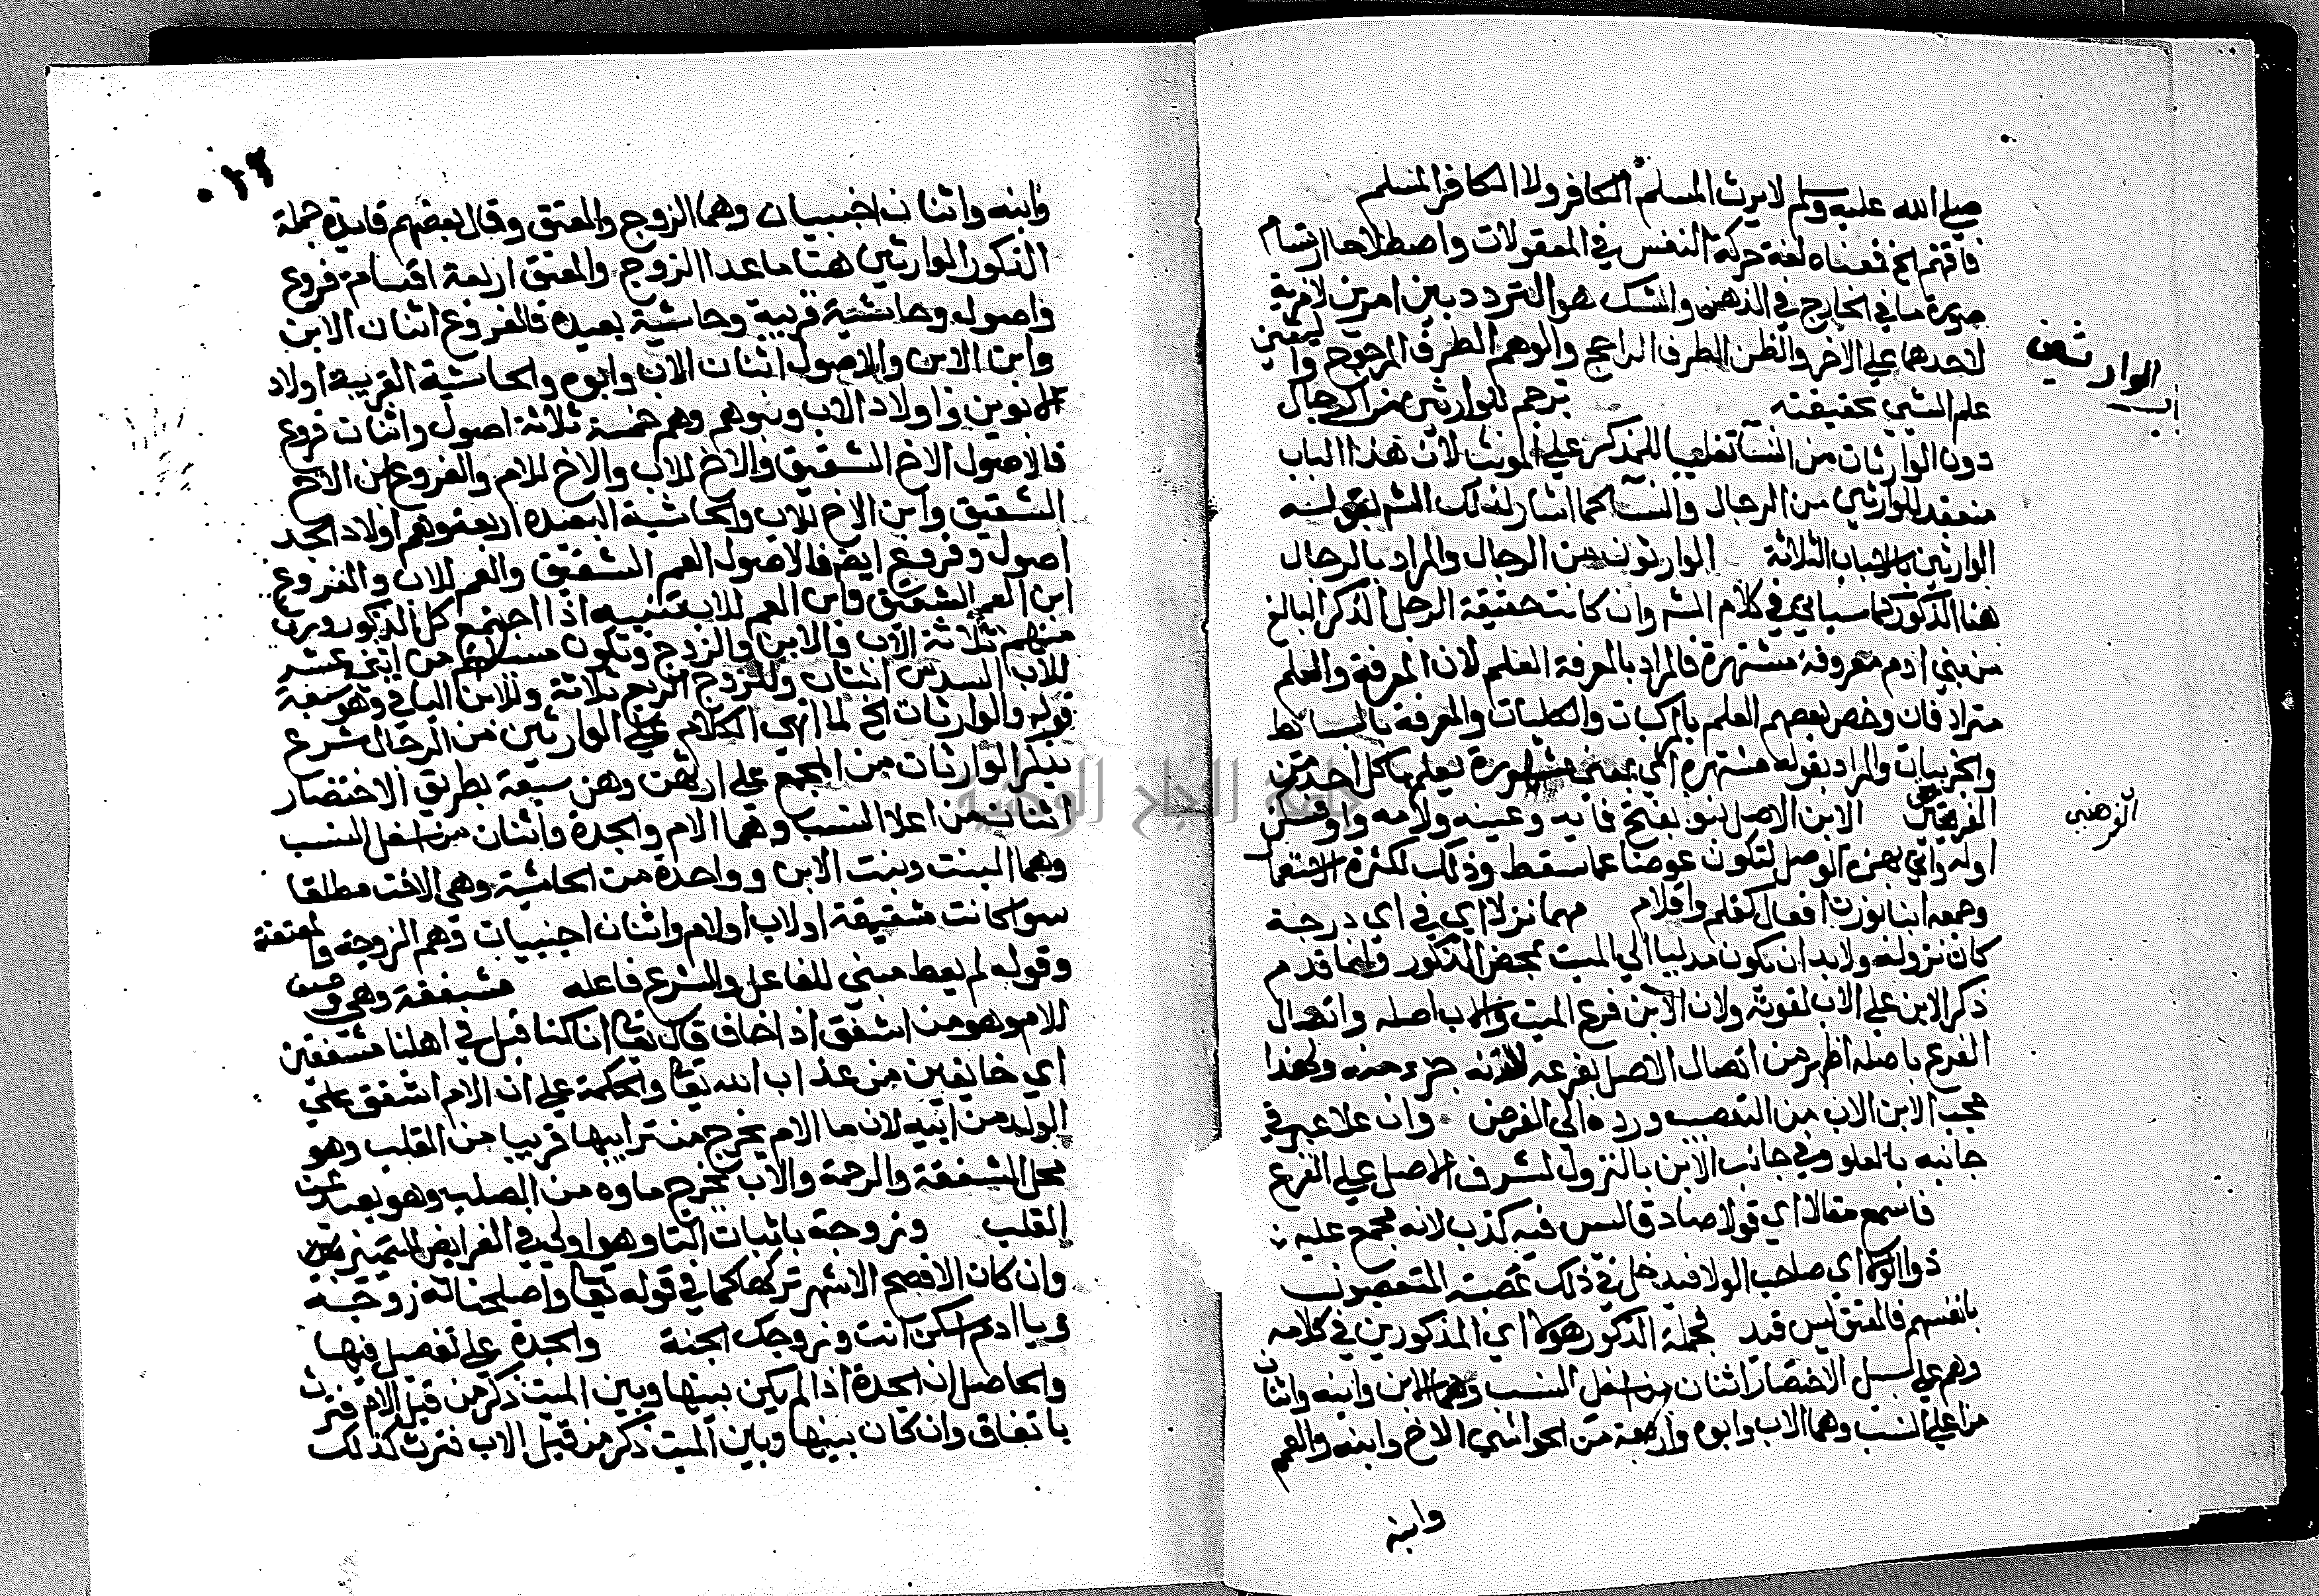 صلي الله عليه وسلم لا يرث المسلم الكافر ولا الكافر المسلم
فافهم الخ فمعناه لغة حركة النفس في المعقولات واصطلاحا ارتسام
صورة ما في الخارج في الذهن والشك هو التردد بين امرين لا مزية
لاحدهما علي الاخر والظن الطرف الراجح والوهم الطرف المرجوح واليقين
علم الشي بحقيقته ترجم للوارثين من الرجال
دون الوارثات من النسا تغليبا للمذكر علي المونث لان هذا الباب
منعقد للوارثين من الرجال والنسا كما اشار لذلك الشم بقوله
الوارثين بالاسباب الثلاثة الوارثون من الرجال والمراد بالرجال
هنا الذكور كما سياتي في كلام الشم وان كانت حقيقة الرجل الذكر البالغ
من بني ادم معروفة مشتهرة فالمراد بالمعرفة العلم لان المعرفة والعلم
مترادفان وخص بعضهم العلم بالمركبات والكليات والمعرفة بالبسائط
والجزييات والمراد بقوله مشتهرة اي بمعنى مشهورة يعلمها كل احد من
الفرضيين الابن الاصل بنو بفتح فايه وعينه ولامه واو
اوله واتي بهمزة الوصل لتكون عوضا عما سقط وذلك لكثرة الاستعما
وجمعه ابنا بوزن افعال كقلم واقلام مهما نزلا اي في اي درجة
كان نزوله ولابد ان يكون مدليا الي الميت بمحض الذكور وانما قدم
ذكر الابن علي الاب لقوته ولان الابن فرع الميت والاب اصله واتصال
الفرع باصله اظهر من اتصال الاصل بفرعه لانه جزء منه ولهذا
حجب الابن الاب من التعصيب ورده الي الفرض وان علا عبر في
جانبه بالعلو وفي جانب الابن بالنزول لشرف الاصل علي الفرع
فاسمع مقالا اي قولا صادقا ليس فيه كذب لانه مجمع عليه
ذو الولا اي صاحب الولا فيدخل في ذلك عصبة المتعصبون
بانفسهم فالمعتق ليس قيد فجملة الذكور هولا اي المذكورين في كلامه
وهم علي سبيل الاختصار اثنان من اسفل النسب وهما الابن وابنه واثنان
من اعلي النسب وهما الاب وابوه واربعة من الحواشي الاخ وابنه والعم
وابنه
الوارثين
باب
الفرضيي
وابنه واثنان اجنبيان وهما الزوج والمعتق وقال بعضهم فايدة جملة
الذكور الوارثين هنا ما عدا الزوج والمعتق اربعة اقسام فروع
واصول وحاشية قريبة وحاشية بعيدة فالفروع اثنان الابن
وابن الابن والاصول اثنان الاب وابوه والحاشية القريبة اولاد
الابوين واولاد الاب وبنوهم وهم خمسة ثلاثة اصول واثنان فروع
فالاصول الاخ الشقيق والاخ للاب والاخ للام والفروع ابن الاخ
الشقيق وابن الاخ للاب والحاشية البعيدة اربعة وهم اولاد الجد
اصول وفروع ايضا فالاصول العم الشقيق والعم للاب والفروع
ابن العم الشقيق وابن العم للاب تنبيه اذا اجتمع كل الذكور ورث
منهم ثلاثة الاب والابن والزوج وتكون مسالتهم من اثني عشر
للاب السدس اثنان وللزوج الربع ثلاثة وللابن الباقي وهو سبعة
قوله والوارثات الخ لما انهي الكلام علي الوارثين من الرجال شرع
يذكر الوارثات من المجمع علي ارثهن وهن سبعة بطريق الاختصار
اثنتان من اعلا النسب وهما الام والجدة واثنان من اسفل النسب
وهما البنت وبنت الابن وواحدة من الحاشية وهي الاخت مطلقا
سوا كانت شقيقة اولاب اولام واثنان اجنبيات وهم الزوجة والمعتقة
وقوله لم يعط مبني للفاعل والشرع فاعله مشفقة وهي
للام وهو من اشفق اذ اخاف قال تعا انا كنا قبل في اهلنا مشفقين
اي خايفين من عذاب الله تعا والحكمة علي ان الام اشفق علي
الولد من ابيه لان ما الام يخرج من ترايبها قريبا من القلب وهو
محل الشفقة والرحمة والاب يخرج ماوه من الصلب وهو بعيد عن
القلب وزوجة باثبات التا وهو اولي في الفرايض للتمييز
وان كان الافصح الاشهر تركها كما في قوله تعا واصلحنا له زوجه
ويا ادم اسكن انت وزوجك الجنة والجدة علي تفصيل فيها
والحاصل ان الجدة اذا لم يكن بينها وبين الميت ذكر من قبل الام فترث
باتفاق وان كان بينها وبين الميت ذكر من قبل الاب فترث كذلك